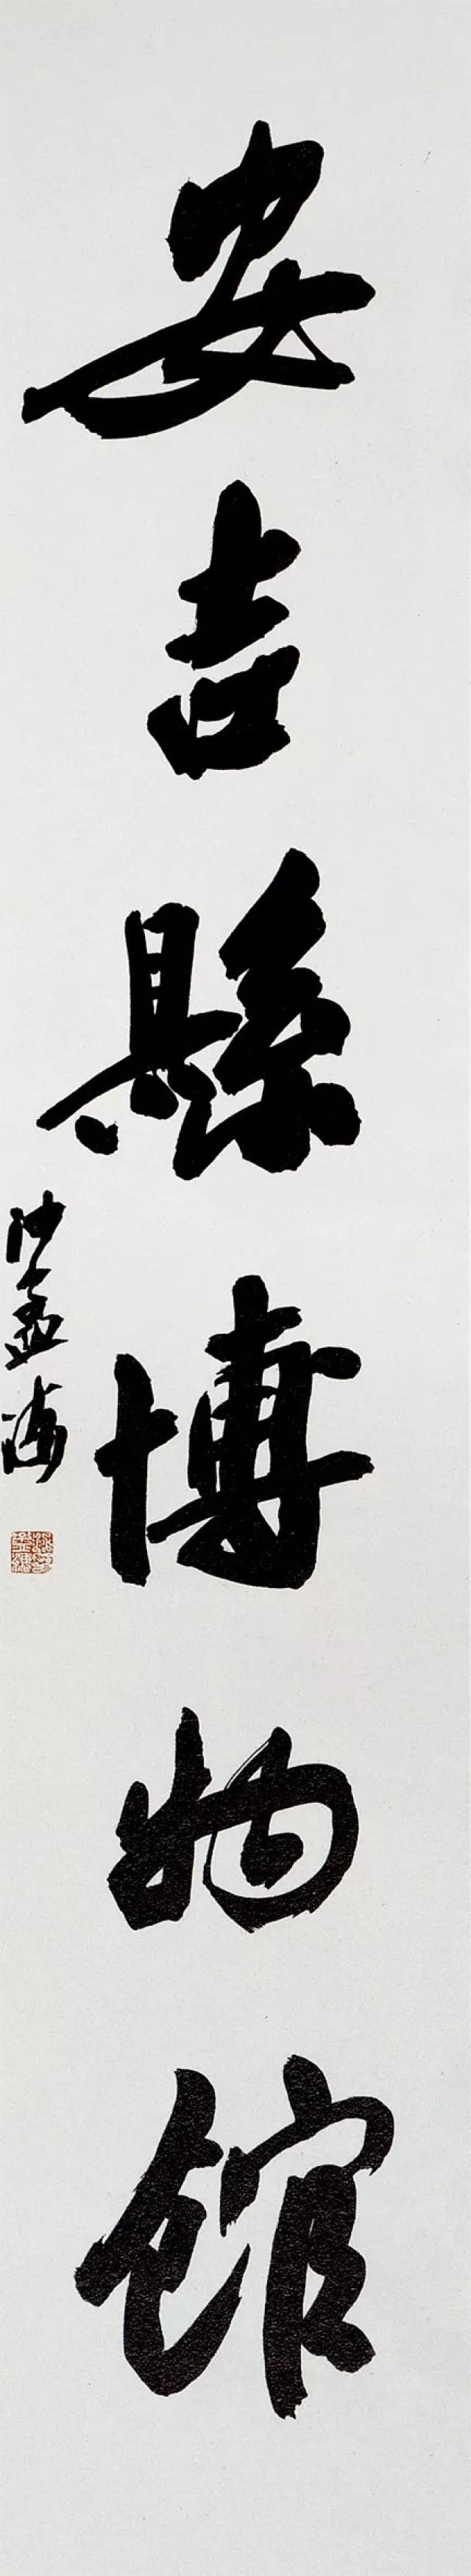 安吉縣博物館
沙孟海